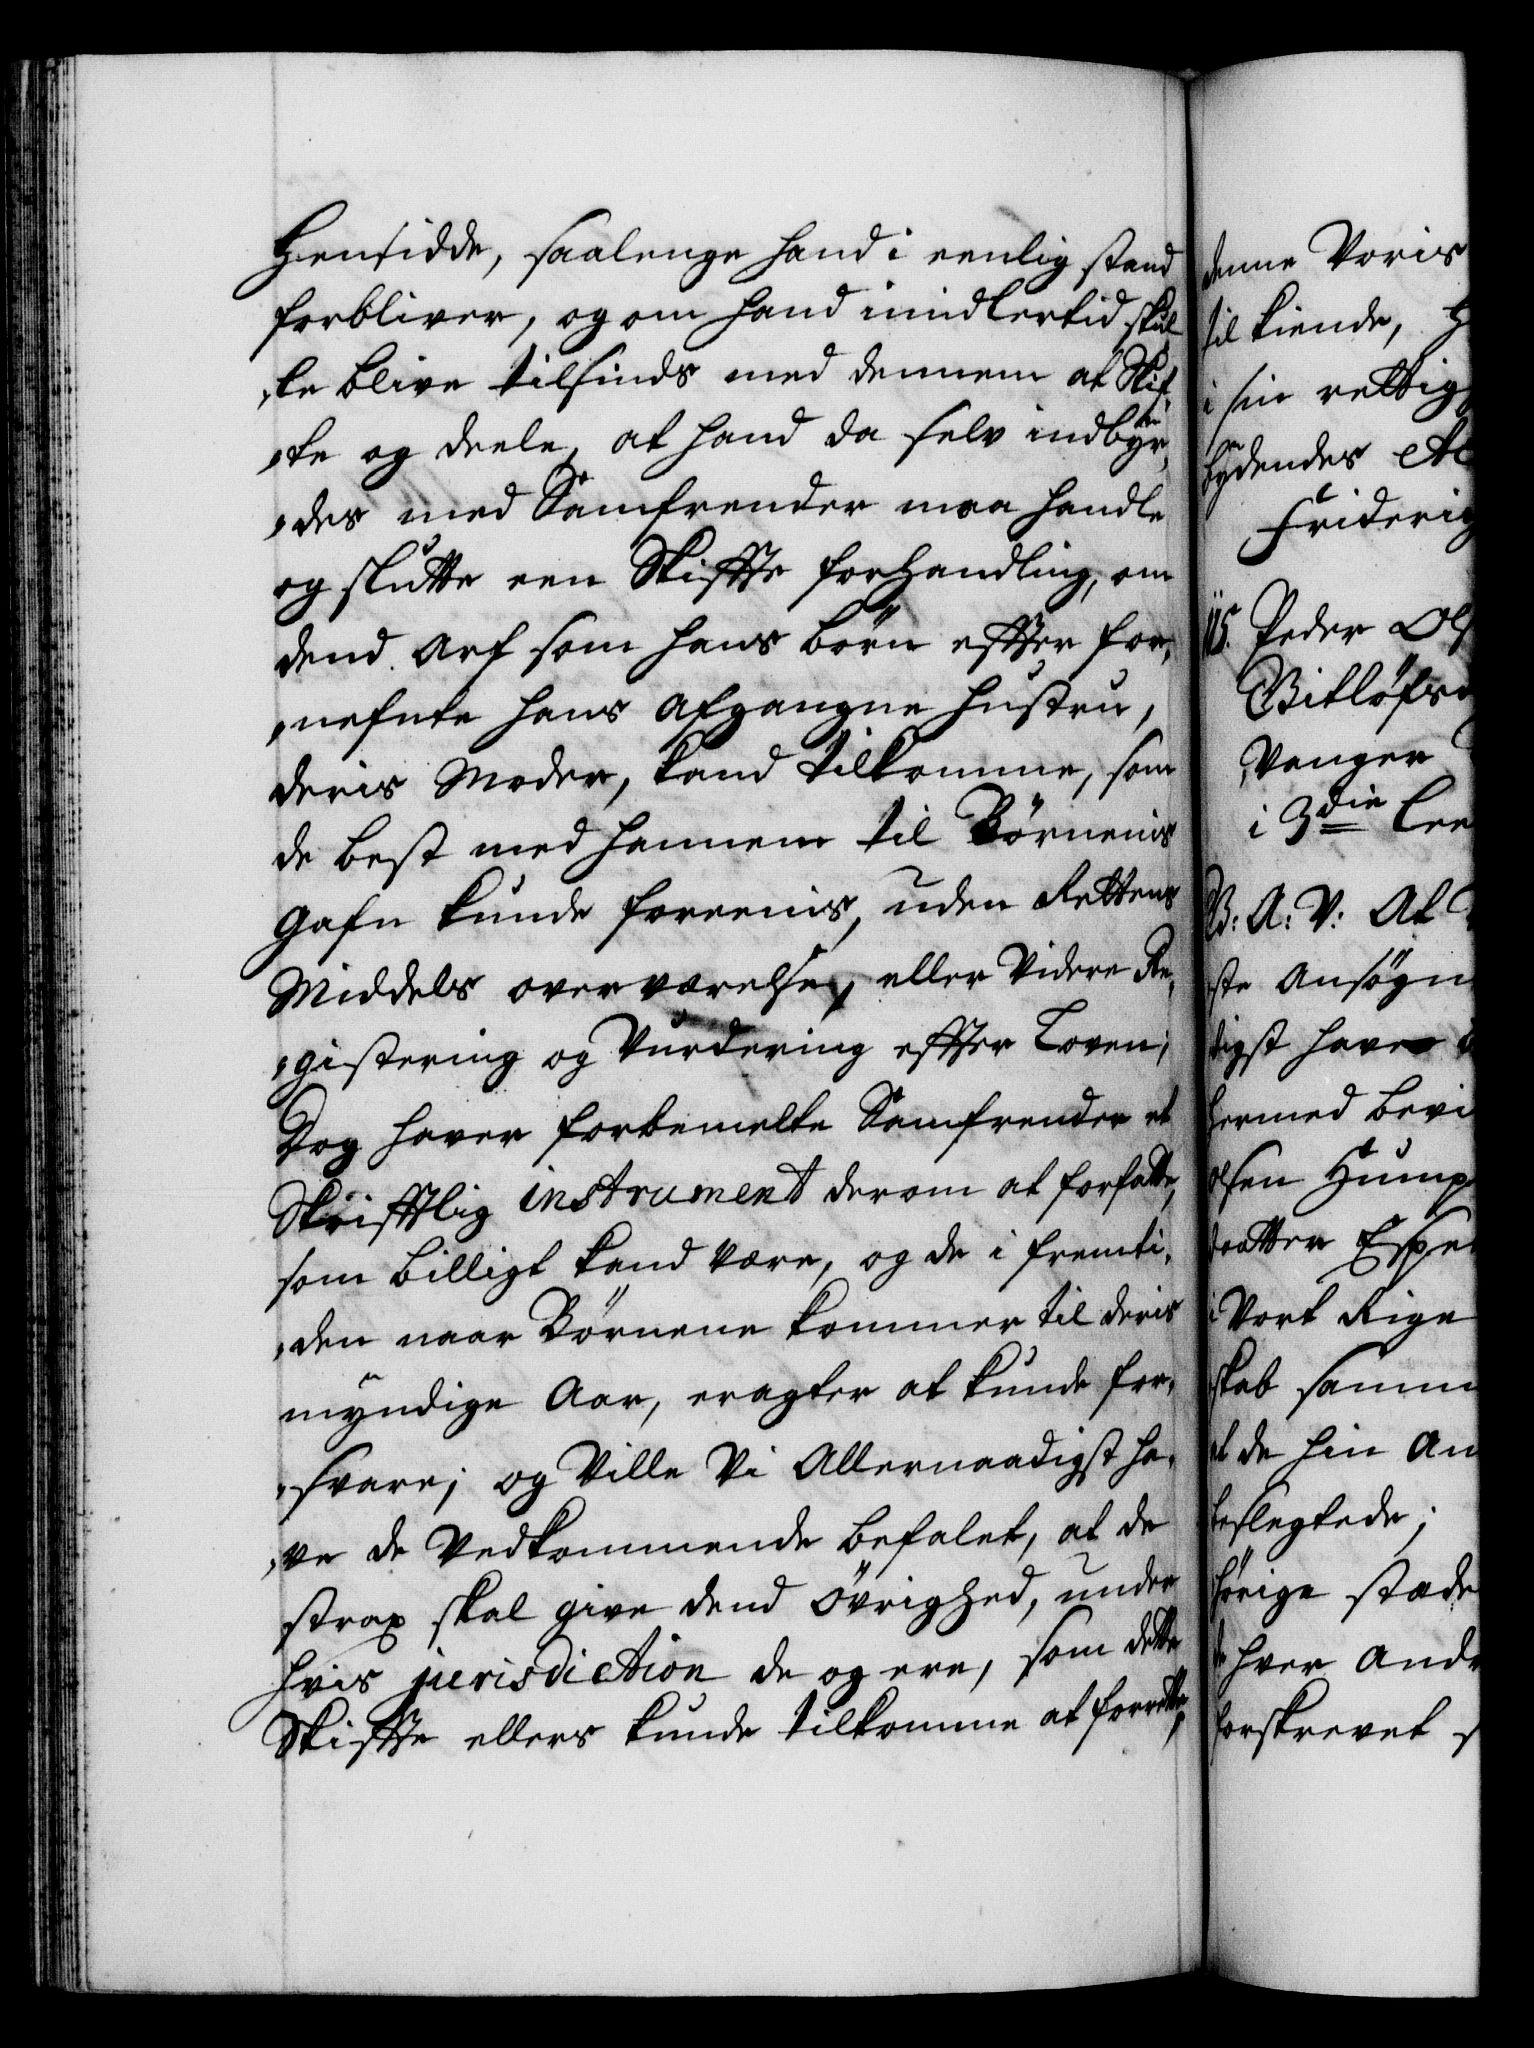 Hensidde, saalenge hand i eenlig stand
forbliver, og om hand imidlertid skul¬
,te blive tilsinds med dennem at Skif¬
,te og deele, at hand da selv indbyr¬
,des med Samfrender maa handle
og slutte een Skiffte forhandling, om
dend Arf som hans börn effter for¬
,nefnte hans Afgangne Hustru,
deris Moder, kand tilkomme, som
de best med hannem til Börnenis
Gafn kunde foreenis, uden Rettens
Middels overværelse, eller Videre Re¬
,gistering og Vurdering effter Loven;
Dog haver forbemelte Samfrender et
Skrifftlig instrument derom at forfatte,
som billigt kand være, og de i fremti¬
,den naar Börnene kommer til deris
myndige Aar, eragter at kunde for¬
,svare; og Ville Vi Allernaadigst ha¬
,ve de Vedkommende befalet, at de
strax skal give dend Övrighed, under
hvis jurisdiction de og ere, som dette
Skiffte ellers kunde tilkomme at forrette,
denne Voris
til kiende,
i sin rettig
bydendes
Friderig
115. Peder Ols
Vanger
i 3die
B: A: V: At
ste Ansøgn
digst have
hermed bevi
olsen Hump
daatter Espe
i Vort Rige
skab samm
at de hin An
beslegtede;
hörige stæde
hver And
forskrevet s